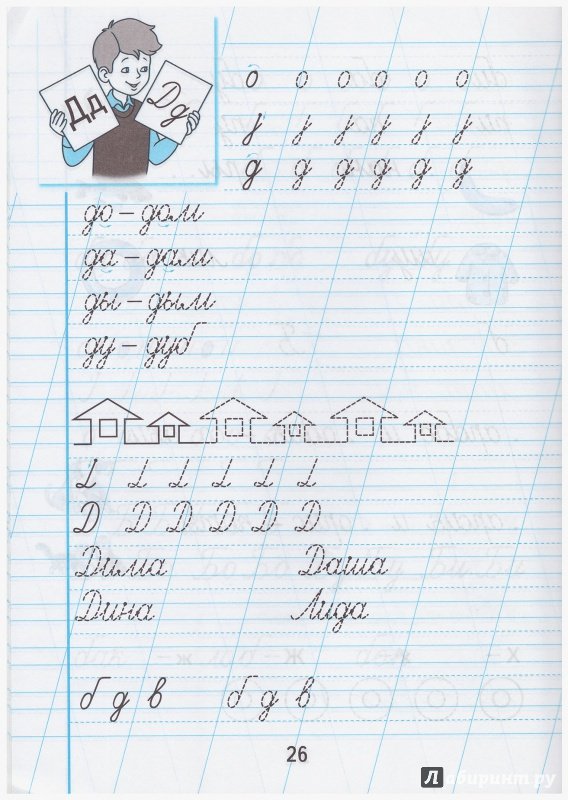 Дд Дд
о о о о о о
д д д д д д
до – дом
да – дам
ды – дым
ду – дуб
Д Д Д Д Д Д
Дима Даша
Дина Лида
б д в б д в
26
Лабиринт.ру